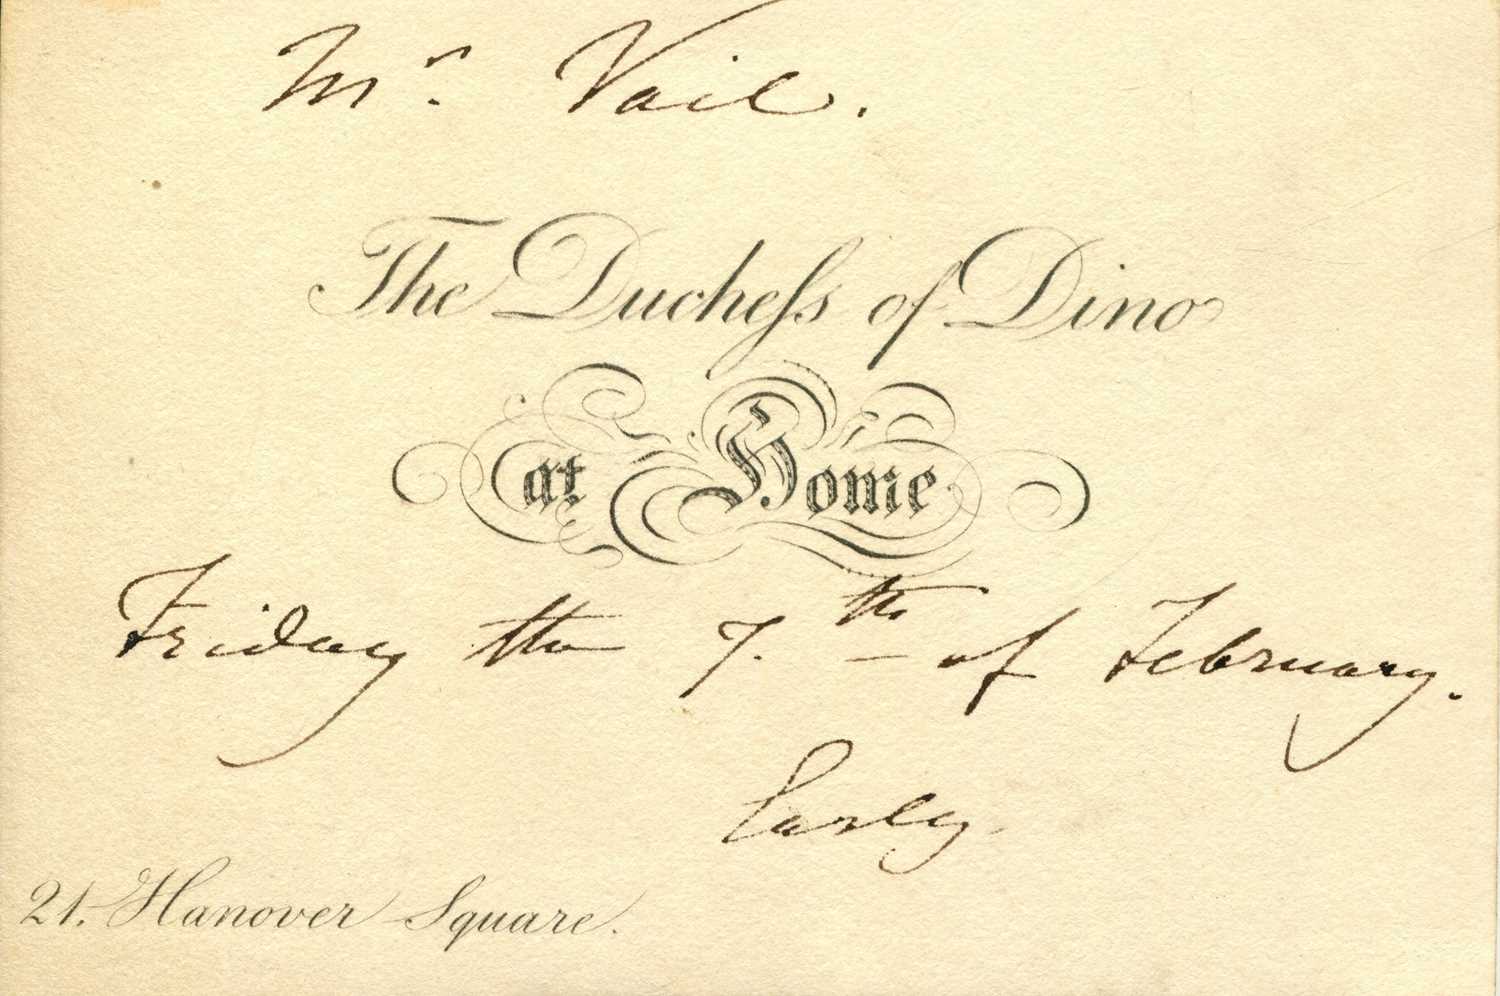 Mr. Vail.
The Ducheſs of Dino
at Home
Friday the 7.th of February.
Early
21. Hanover Square.